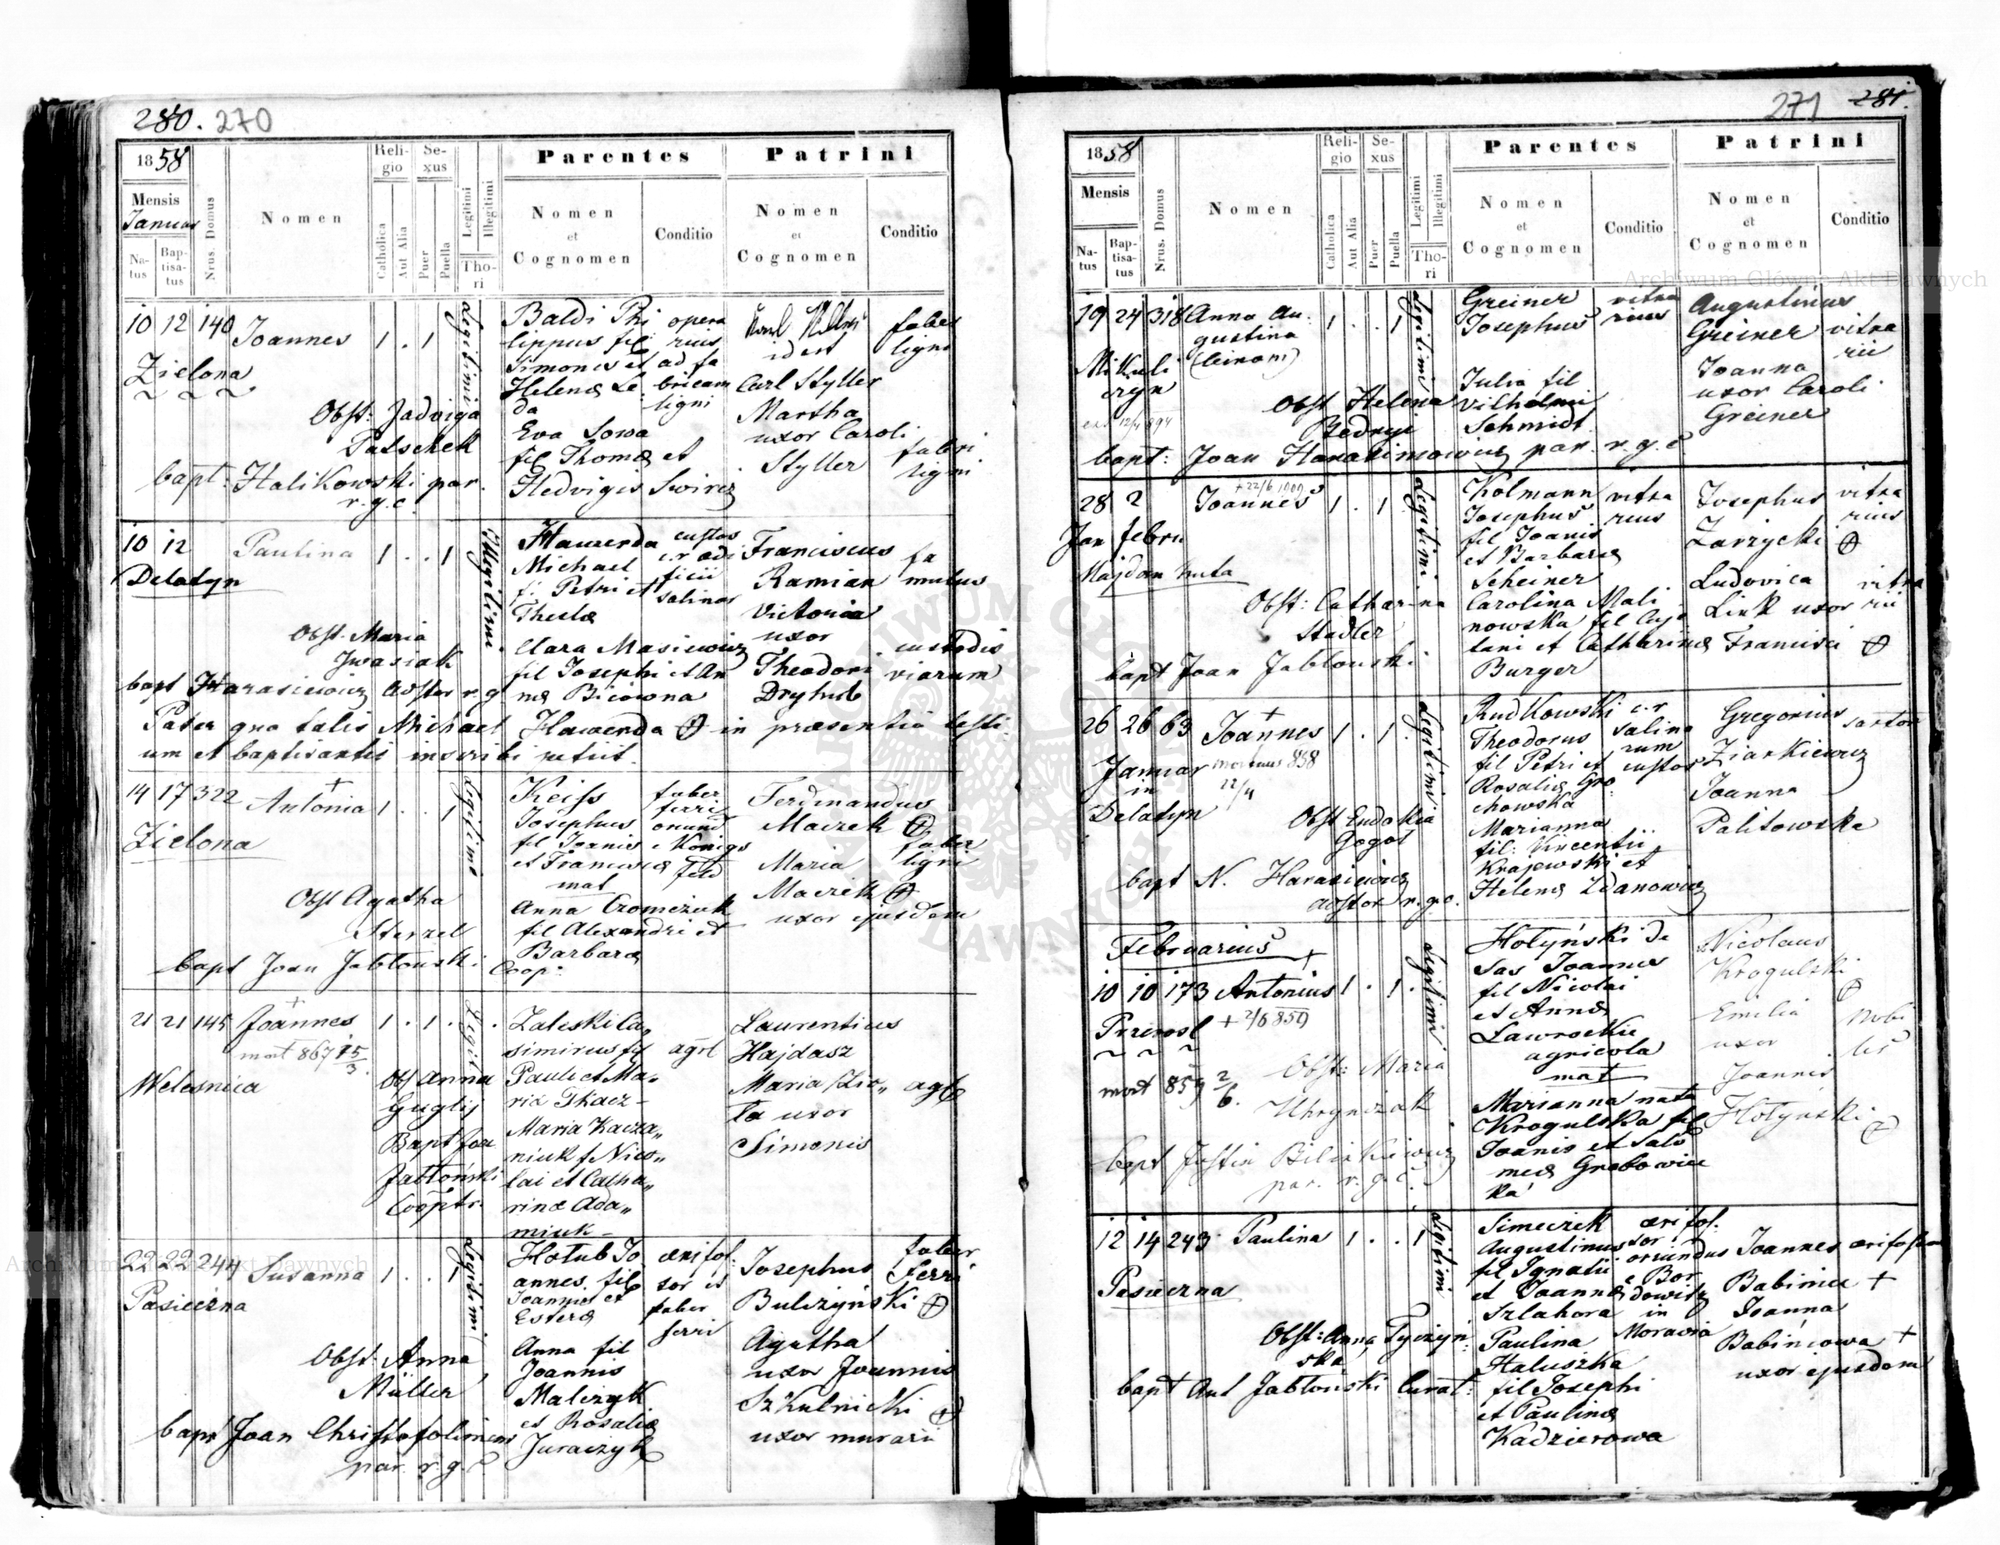 280. 270
1858
Mensis
Januar
Na-
tus
Bap-
tisa-
tus
Nrus. Domus
Nomen
Reli-
gio
Catholica
Aut Alia
Se-
xus
Puer
Puella
Legitimi
Illegitimi
Tho-
ri
Parentes
Nomen
et
Cognomen
Conditio
Patrini
Nomen
et
Cognomen
Conditio
10 12 140 Joannes 1 . 1
Zielona
Obst: Jadviga
Patschek
bapt: Halikowski par.
r.g.c.
Legitimi
Baldi Phi
lippus fil
Simonis et
Helenæ Le
da
Eva Sowa
fil Thomæ et
Hedvigis Swircz
opera
rius
ad fa
bricam
ligni
idest
Carl Styller
Martha
uxor Caroli
Styller
faber
ligni
fabri
ligni
10 12 Paulina 1 . . 1
Delatyn
Obst. Maria
Jwasiak
bapt Harasiewicz Costor r.g
Illegitimi
Hawerda
Michael
f. Petri et
Theclæ
Clara Masiewicz
fil Josephi et An
næ Bicowna
custos
c.r. ædi
ficii
salinar
Franciscus
Ramian
Victoria
uxor
Theodori
Dryhub
fa
mulus
custodis
viarum
Pater qua talis Michael Hawerda in præsentia testi
um et baptisantis inscribi petiit.
14 17 322 Antonia 1 . . 1
Zielona
Obst Agatha
Sterzel
bapt Joan Jabłonski Coop.
Legitimi
Keiss
Josephus
fil Joanis
et Franciscæ
mat
Anna Cromczuk
fil Alexandri et
Barbaræ
faber
ferri
oriund
e Königs
feld
Ferdinandus
Maczek
Maria
Maczek
uxor ejusdem
faber
ligni
21 21 145 Joannes 1 . 1 .
mort 867 15/3.
Welesnica
Obs Anna
Guglij
Bapt Joa
Jabłoński
Cooptr.
Legit
Zaleski Ca„
simirus fil
Pauli et Ma„
riæ Tkacz-
Maria Kacza„
niuk f Nico„
lai et Catha„
rinæ Ada„
miuk-
agrl
Laurentius
Hajdasz
Maria
uxor
Simonis
22 22 244 Susanna 1 . . 1
Pasieczna
Obst: Anna
Müller
bapt Joan Christofolimens
par. r.g.c
Legitimi
Hołub Jo
annes fil
Joannis et
Esteræ
Anna fil
Joannis
Malczyk
et Rosaliæ
Juraczyk
ærifos
sor et
faber
ferri
Josephus
Bulczyński
Agatha
uxor Joannis
Szkulnicki
uxor murari
faber
ferri
271 281.
1858
Mensis
Na-
tus
Bap-
tisa-
tus
Nrus. Domus
Nomen
Reli-
gio
Catholica
Aut Alia
Se-
xus
Puer
Puella
Legitimi
Illegitimi
Tho-
ri
Parentes
Nomen
et
Cognomen
Conditio
Patrini
Nomen
et
Cognomen
Conditio
19 24 318 Anna Au-
gustina
(binom)
1 . . 1
Mikuli
czyn
Obst Helena
Bedryj
bapt: Joan Harasimowicz par. r.g.c
Legitimi
Greiner
Josephus
Julia fil
Vilhelmi
Schmidt
vitra
rius
Augustinus
Greiner
Joanna
uxor Caroli
Greiner
vitra
rii
28 2 Joannes 1 . 1
Jan Febru
Majdan huta
Obst: Catharina
Stadler
bapt Joan Jabłonski
Legitimi
Kolmann
Josephus
fil Joanis
et Barbaræ
Scheiner
Carolina Mali
nowska fil Caje
tani et Catharinæ
Burger
vitra
rius
Josephus
Zarzycki
Ludovica
Link uxor
Francisci
vitra
rius
vitra
rii
26 26 63 Joannes 1 . 1
Januar
in
Delatyn
mortuus 858
22/4
Obst Eudokia
Gogol
bapt N. Harasiewicz
Costor r.g.c.
Legitimi
Rudkowski
Theodorus
fil Petri et
Rosaliæ Gro
chowska
Marianna
fil: Vincentii
Krajewski et
Helenæ Zdanowicz
c.r
salina
rum
custos
Gregorius
Ziarkiewicz
Joanna
Palitowska
sartor
Februarius
10 10 173 Antonius 1 . 1 .
+ 2/6 859
Przerosl
mort 859 2/6.
Obst: Maria
Uhryniczak
bapt Justin Bilinkiewicz
par. r.g.c.
Legitimi
Hołyński de
Sas Joannes
fil Nicolai
et Annæ
Ławrockie
agricola
mat
Marianna nata
Krogulska fil
Joanis et Salo
meæ Grabowiec
ka
Nicolaus
Krogulski
Emilia
uxor
Joannis
Hołyński
Nobi
les
12 14 243 Paulina 1 . . 1
Pasieczna
Obst: Anna Tyczyń
ska
bapt Ant Jabłonski Curat:
Legitimi
Simeczek
Augustinus
fil Ignatii
et Joannæ
Szlahora
Paulina
Haluszka
fil Josephi
et Paulinæ
Kadzierowa
ærifos:
sor
oriundus
e Bor
dowitz
in
Moravia
Joannes
Babiniec
Joanna
Babincowa
uxor ejusdem
ærifossor
Archiwum Główne Akt Dawnych